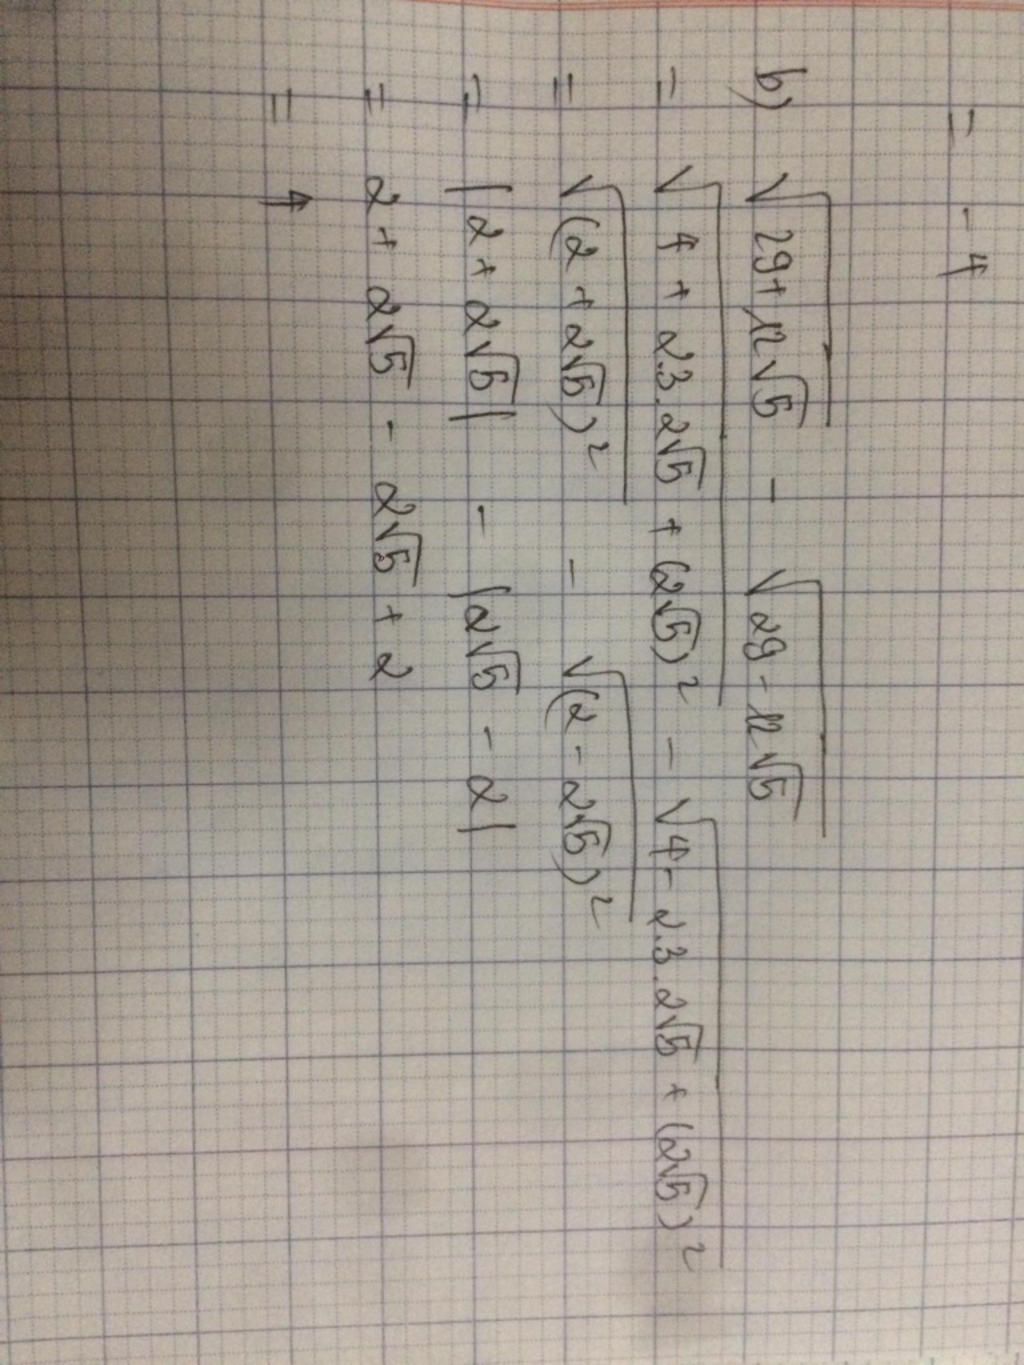 = -4
b) √(29+12√5) - √(29-12√5)
= √(4 + 2.3.2√5 + (2√5)²) - √(4 - 2.3.2√5 + (2√5)²)
= √((2 + 2√5)²) - √((2 - 2√5)²)
= |2 + 2√5| - |2√5 - 2|
= 2 + 2√5 - 2√5 + 2
= 4